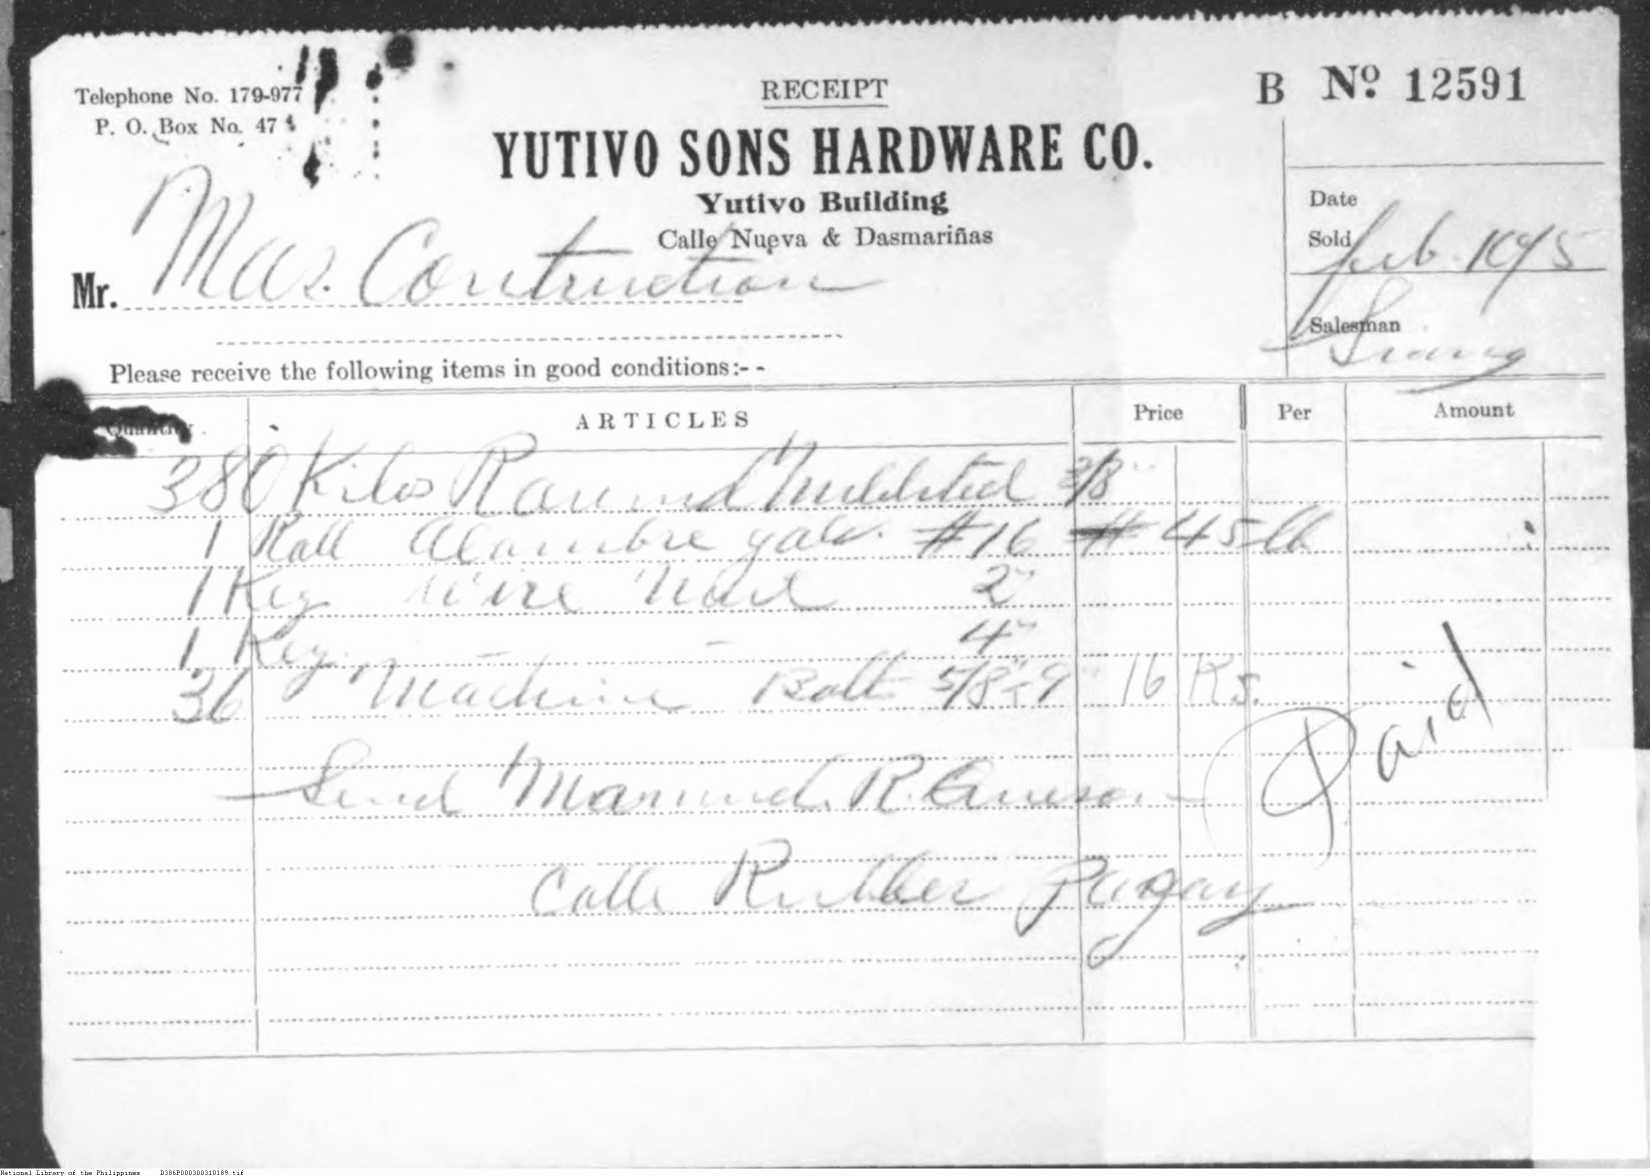 RECEIPT
B Nº 12591
Telephone No. 179-977
P. O. Box No. 47
YUTIVO SONS HARDWARE CO.
Yutivo Building
Calle Nueva & Dasmariñas
Mr. Mas. Contruction
Date
Sold Feb.
Salesman
Please receive the following items in good conditions:--
Quantity ARTICLES Price Per Amount
380 Kilos Raound 3/8"
1 Roll Alambre galv. #16 # 45 lb
1 Keg Wire Nail 2"
1 Keg " " 4"
36 Machine Bolt 5/8" 9" 16 Ks.
Send R.
Calle
Paid
National Library of the Philippines D386P000300310189.tif